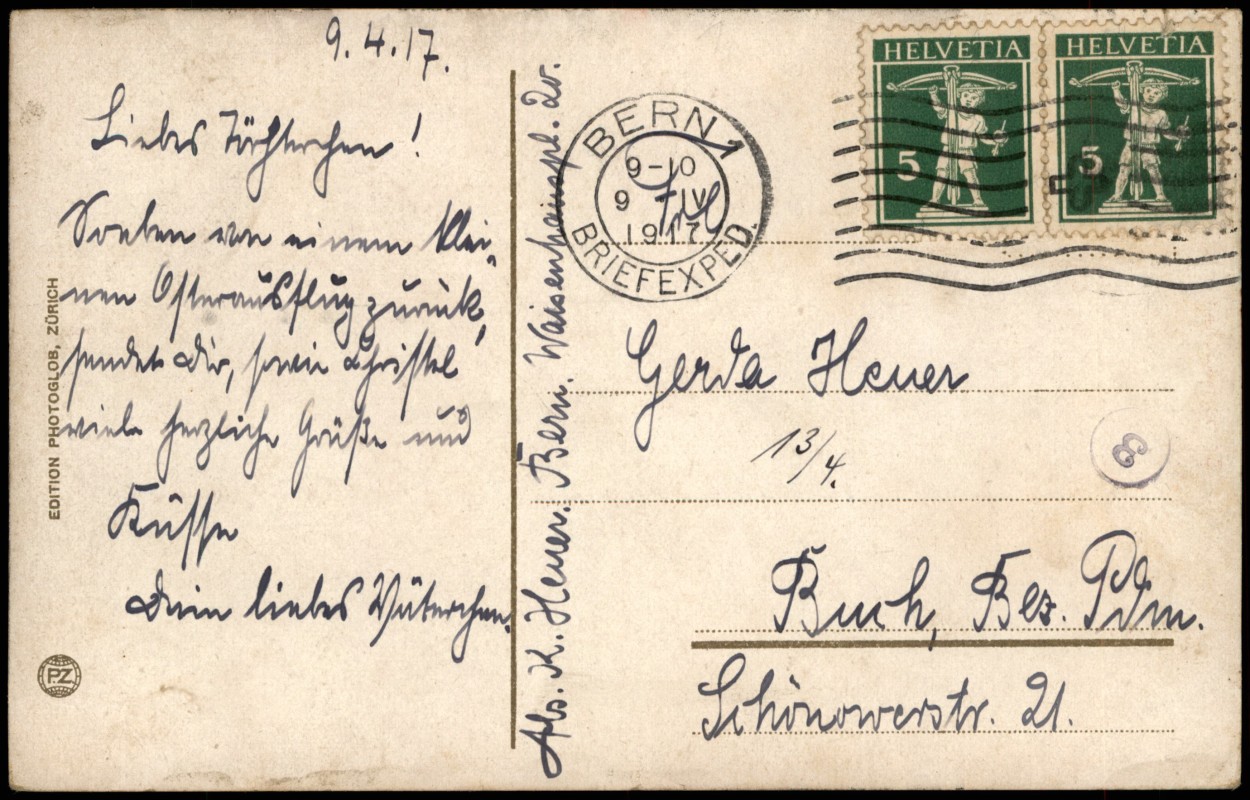 9.4.17.
Liebes Töchterchen!
Soeben von einem klei-
nen Osterausflug zurück,
sendet Dir, sowie Christel
viele herzliche Grüße und
Küsse
Dein liebes Väterchen.
EDITION PHOTOGLOB, ZÜRICH
PZ
Abs. K. Heuer. Bern. Waisenhauspl. 2v.
BERN 1
9-10
9 IV
1917
BRIEFEXPED.
HELVETIA
5
HELVETIA
5
Gerda Heuer
13/4.
Buch, Bez. Pdm.
Schönowerstr. 21.